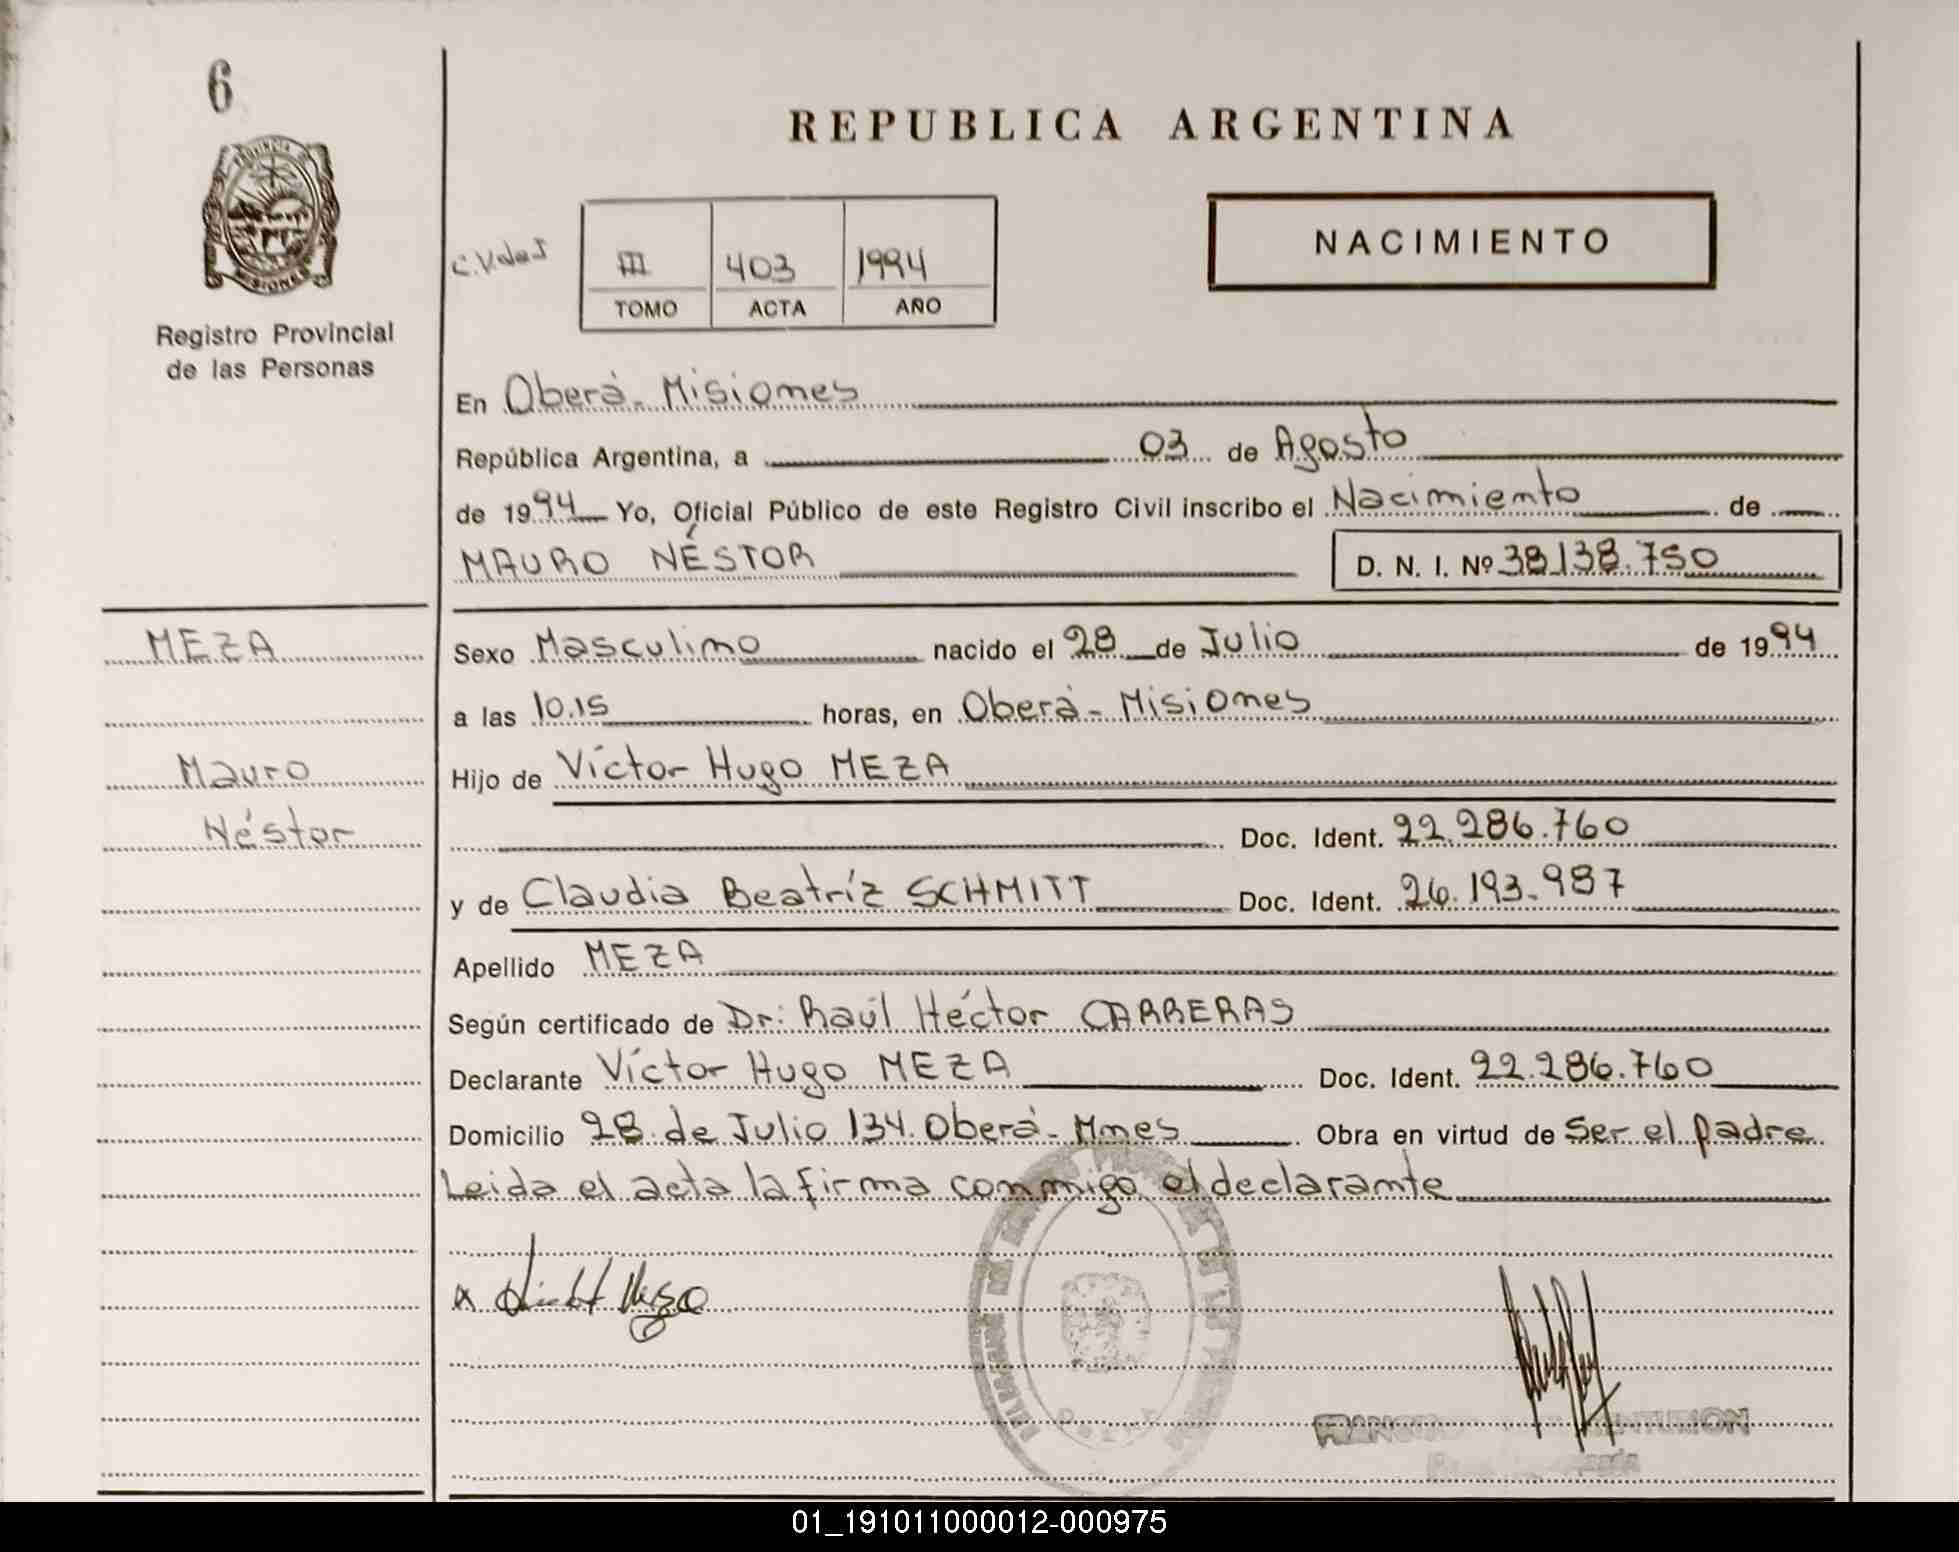 6
REPUBLICA ARGENTINA
PROVINCIA DE
MISIONES
Registro Provincial
de las Personas
NACIMIENTO
III 403 1994
TOMO ACTA AÑO
En Oberá - Misiones
República Argentina, a 03 de Agosto
de 1994 Yo, Oficial Público de este Registro Civil inscribo el Nacimiento de
MAURO NÉSTOR D. N. I. Nº 38.138.750
MEZA
Mauro
Néstor
Sexo Masculino nacido el 28 de Julio de 1994
a las 10.15 horas, en Oberá - Misiones
Hijo de Víctor Hugo MEZA
Doc. Ident. 22.286.760
y de Claudia Beatríz SCHMITT Doc. Ident. 26.193.987
Apellido MEZA
Según certificado de Dr: Raúl Héctor CARRERAS
Declarante Víctor Hugo MEZA Doc. Ident. 22.286.760
Domicilio 28 de Julio 134. Oberá - Mnes Obra en virtud de Ser el padre
Leida el acta la firma conmigo el declarante
01_191011000012-000975